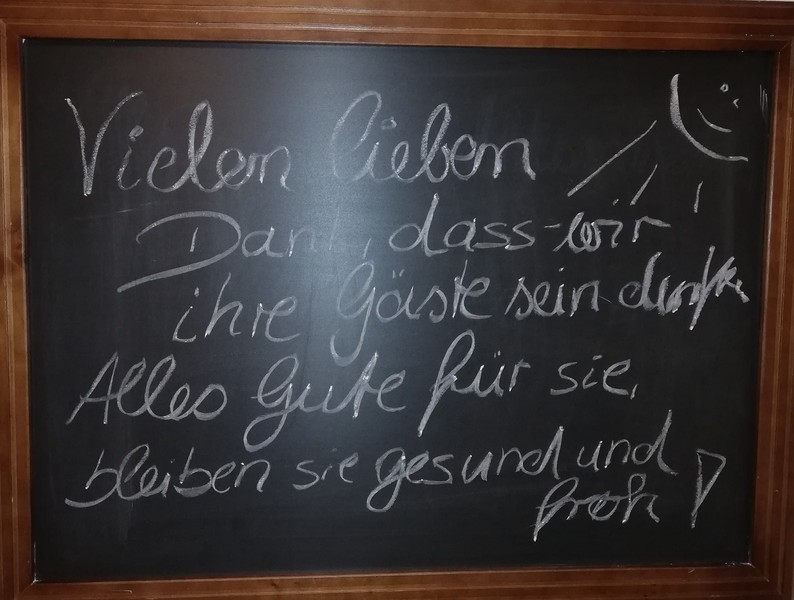 Vielen lieben
Dank, dass wir
ihre Gäste sein
Alles Gute für sie,
bleiben sie gesund und
froh!